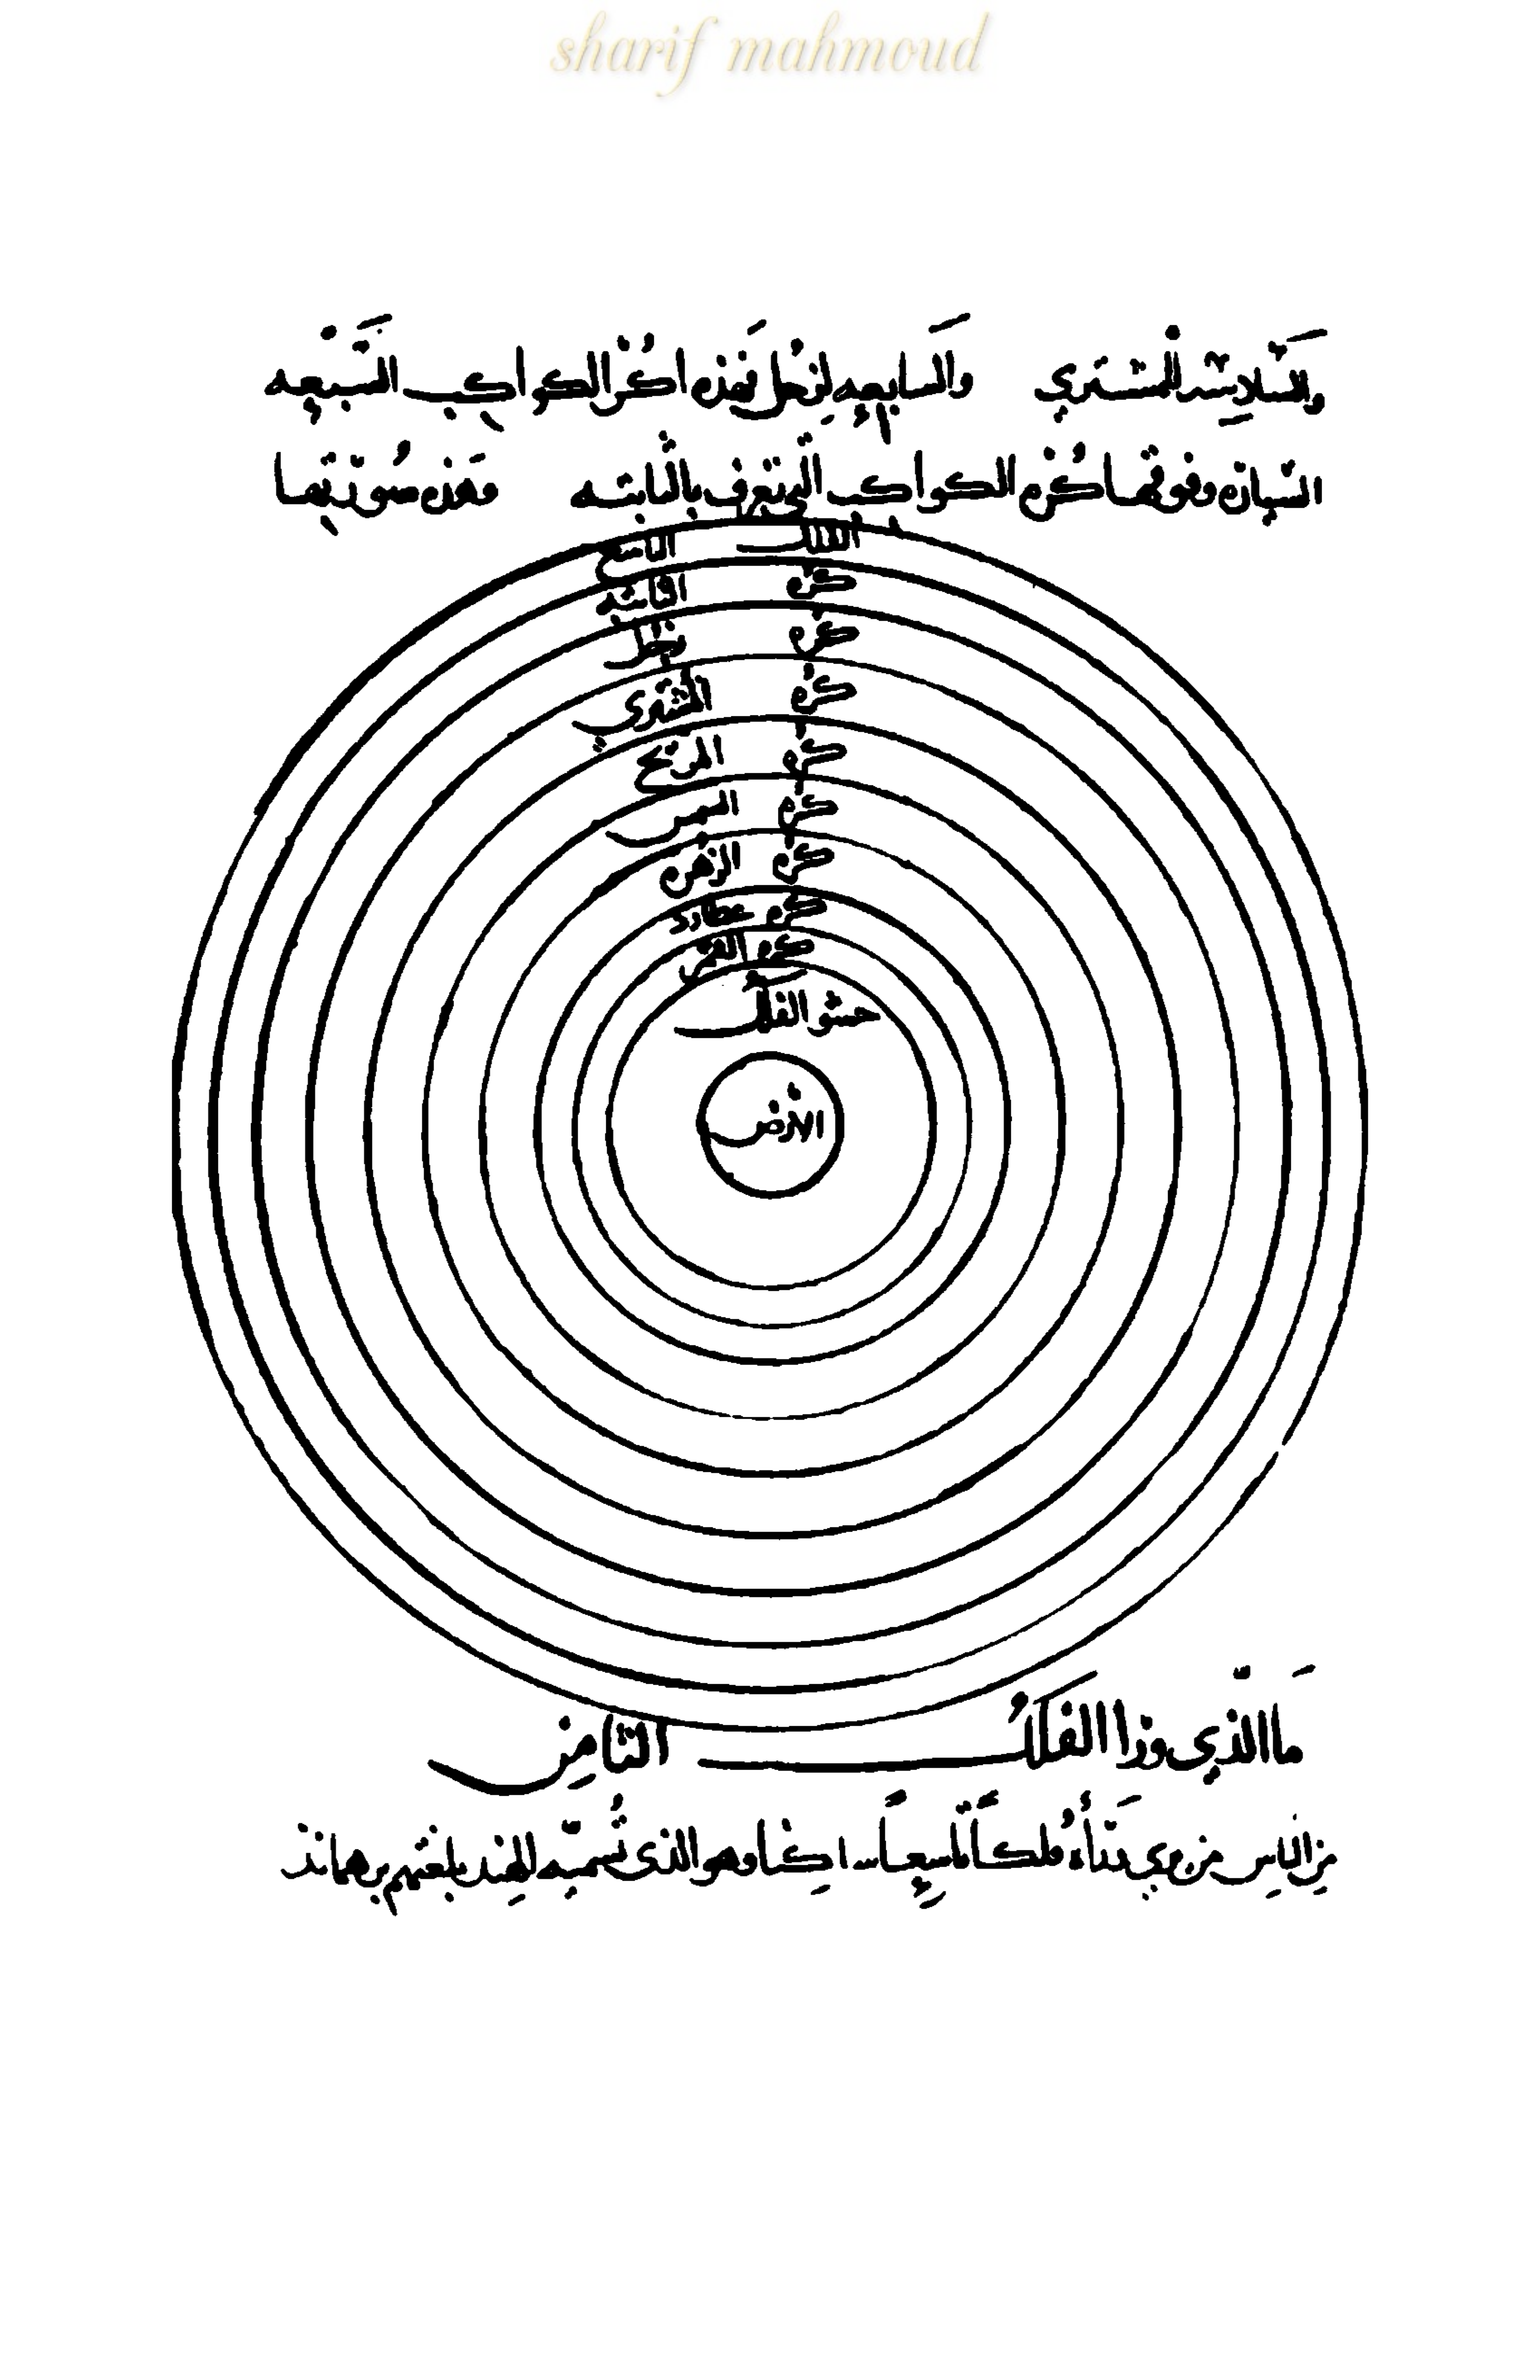 sharif mahmoud
والسادسة للمشتري والسابعه لزحل فهذه اكر الكواكب السبعه
السياره وفوقها كره الكواكب التي تعرف بالثابته وهذه صورتها
الفلك التاسع
كره الثابته
كره زحل
كره المشتري
كره المريخ
كره الشمس
كره الزهره
كره عطارد
كره القمر
حشو الفلك
الارض
ما الذي ورا الفلك الثامن
من الناس من يري وراءه فلكا تاسعا ساكنا وهو الذي تسميه الهند بلغتهم برهماند